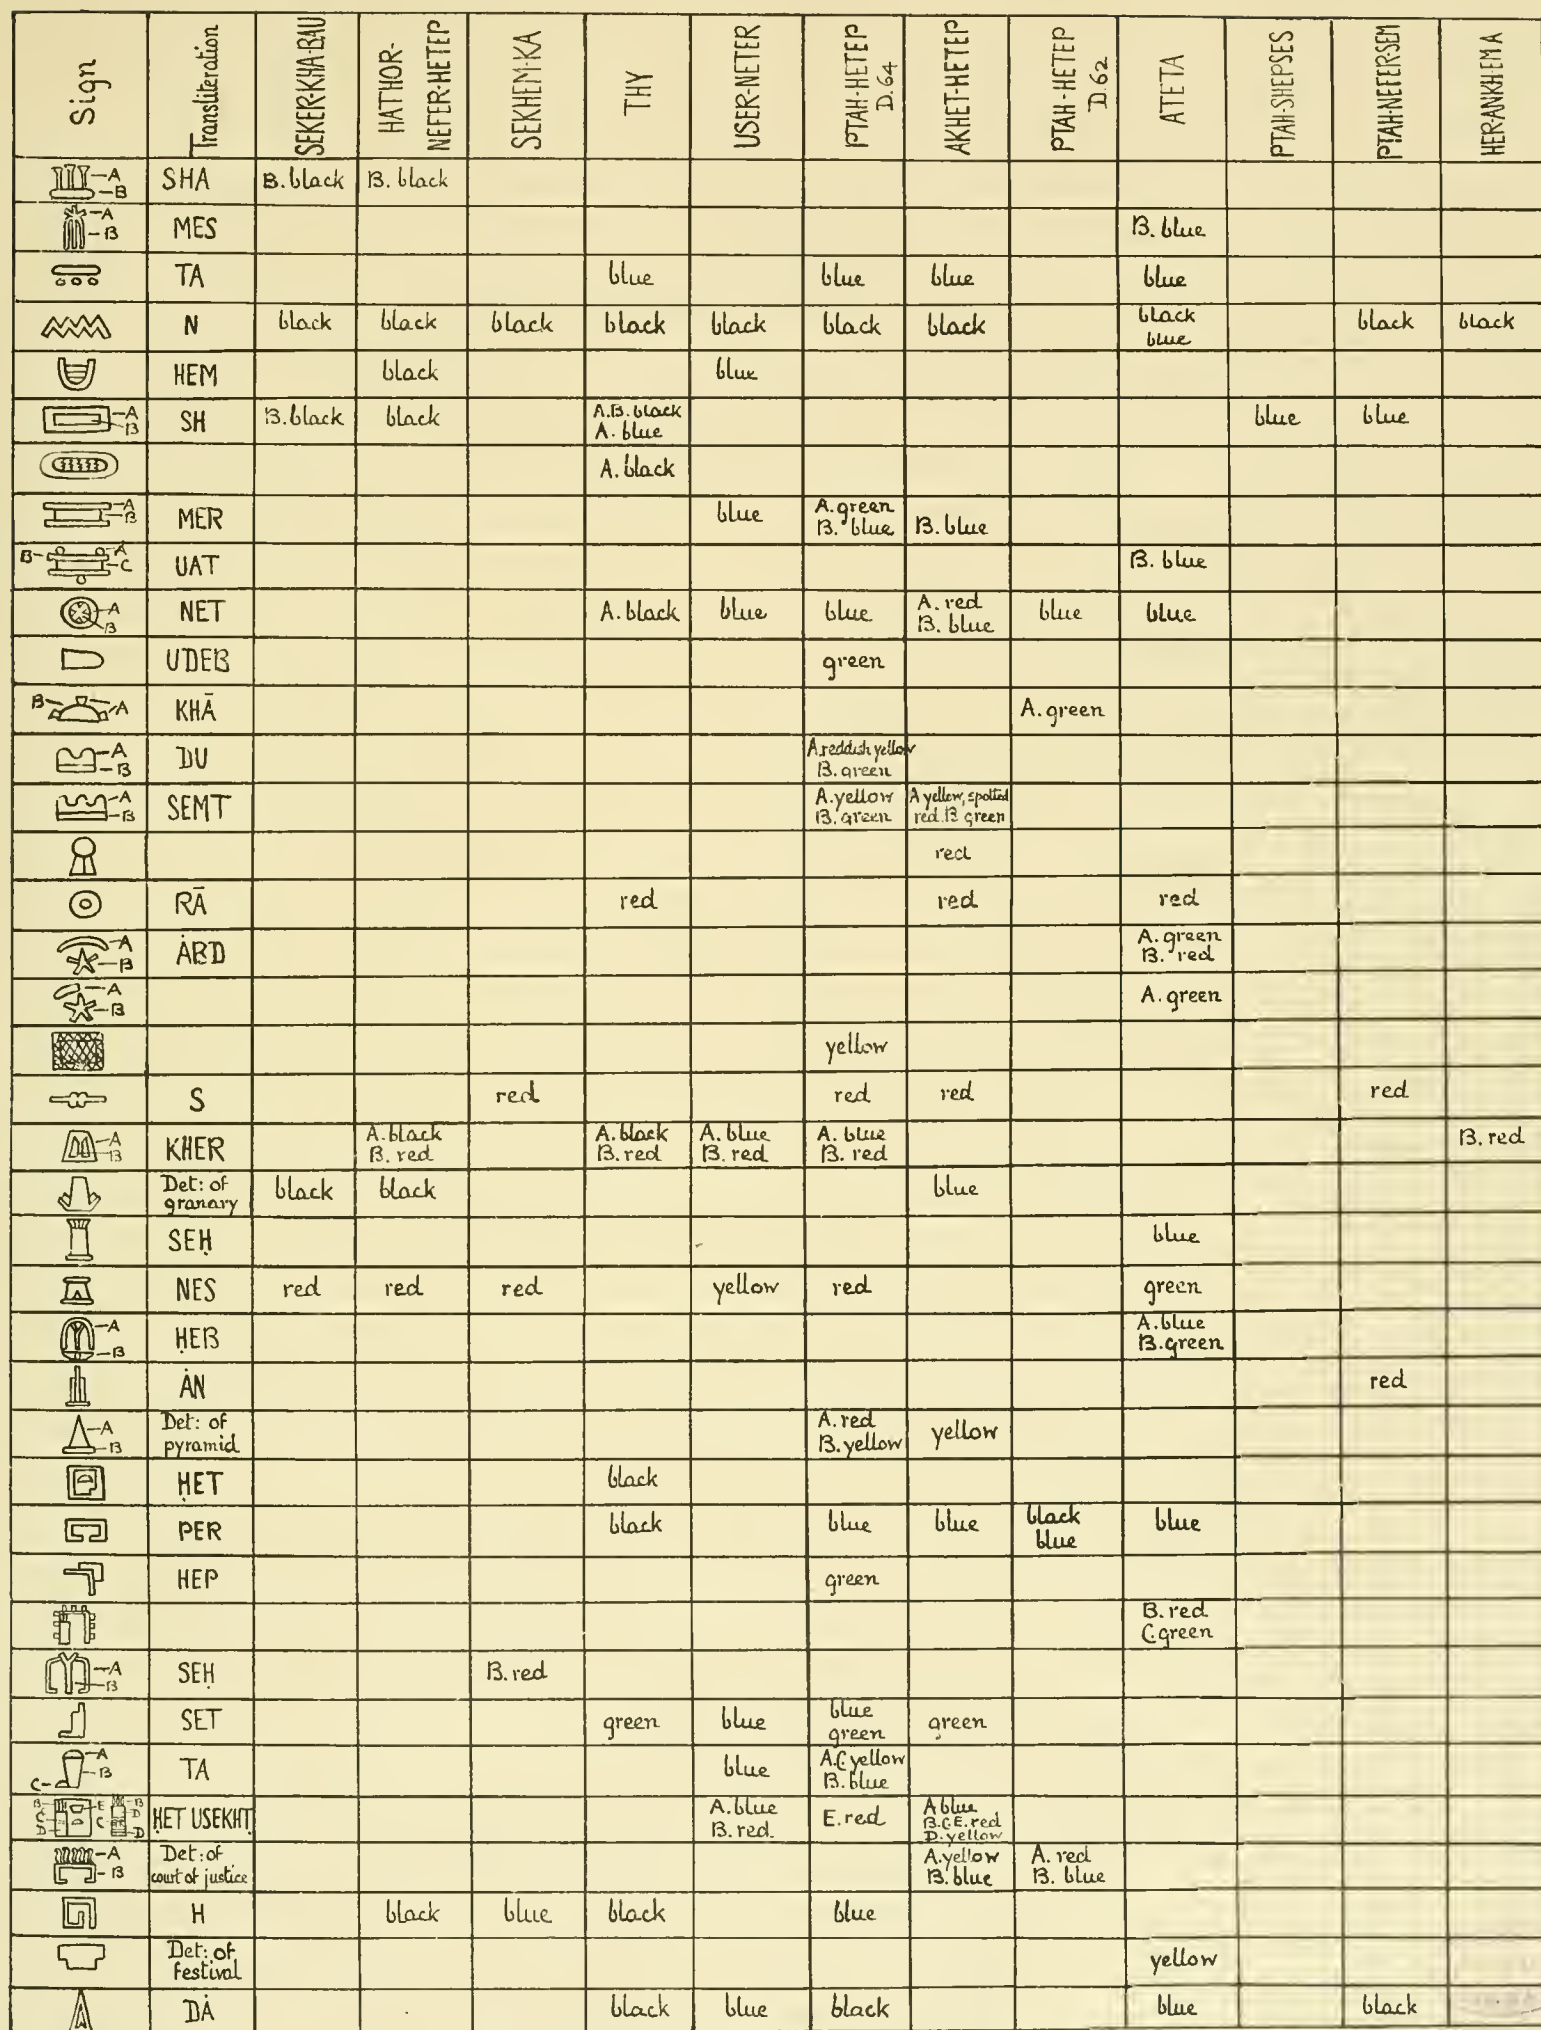 Sign Transliteration SEKER-KHA-BAU HATHOR-NEFER-HETEP SEKHEM-KA THY USER-NETER PTAH-HETEP D.64 AKHET-HETEP PTAH-HETEP D.62 ATETA PTAH-SHEPSES PTAH-NEFER-SEM HER-ANKH-EM A
A B SHA B. black B. black
A B MES B. blue
TA blue blue blue blue
N black black black black black black black black blue black black
HEM black blue
A B SH B. black black A.B. black A. blue blue blue
A. black
A B MER blue A. green B. blue B. blue
B A C UAT B. blue
A B NET A. black blue blue A. red B. blue blue blue
UDEB green
B A KHĀ A. green
A B DU A. reddish yellow B. green
A B SEMT A. yellow B. green A yellow, spotted red. B green
red
RĀ red red red
A B ȦBD A. green B. red
A B A. green
yellow
S red red red red
A B KHER A. black B. red A. black B. red A. blue B. red A. blue B. red B. red
Det: of granary black black blue
SEḤ blue
NES red red red yellow red green
A B ḤEB A. blue B. green
ȦN red
A B Det: of pyramid A. red B. yellow yellow
ḤET black
PER black blue blue black blue blue
HEP green
B. red C. green
A B SEḤ B. red
SET green blue blue green green
A B C TA blue A.C. yellow B. blue
B C D E C B D D ḤET USEKHT A. blue B. red. E. red A blue B.C.E. red D. yellow
A B Det: of court of justice A. yellow B. blue A. red B. blue
H black blue black blue
Det: of festival yellow
DȦ black blue black blue black